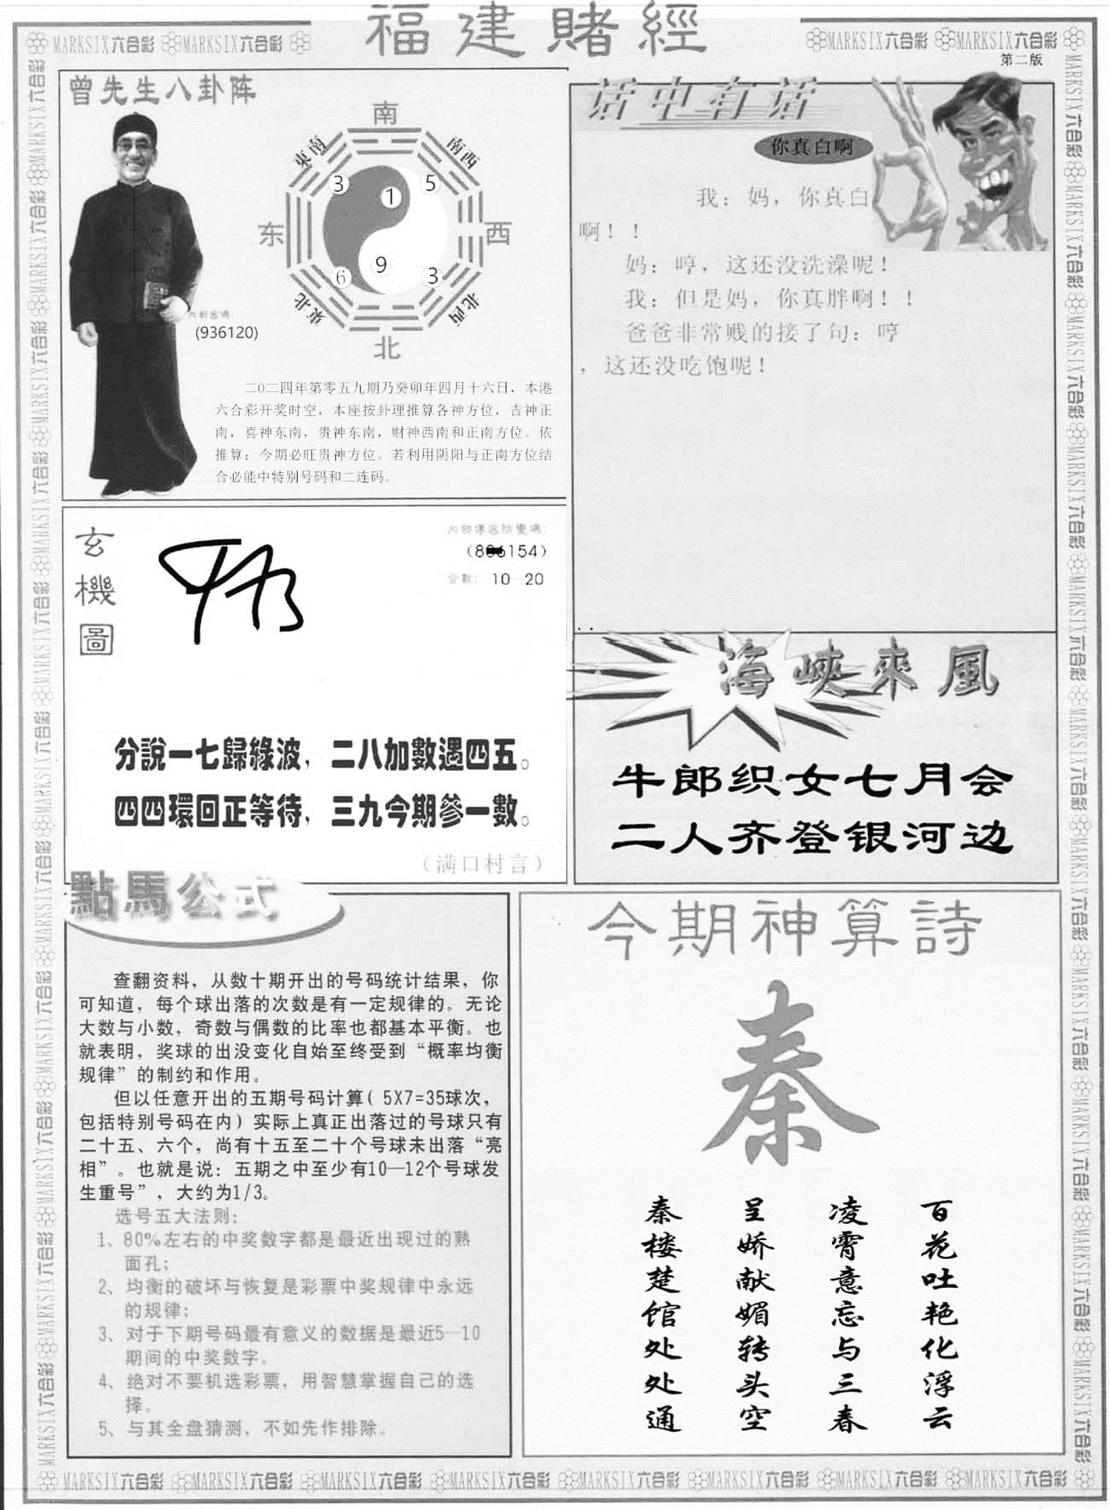 福建賭經
MARKSIX六合彩 MARKSIX六合彩
MARKSIX六合彩 MARKSIX六合彩
第二版
曾先生八卦阵
南
東南
南西
3
1
5
东
西
6
9
3
東北
北西
北
内部密碼:
(936120)
二〇二四年第零五九期乃癸卯年四月十六日，本港
六合彩开奖时空，本座按卦理推算各神方位，吉神正
南，喜神东南，贵神东南，财神西南和正南方位。依
推算：今期必旺贵神方位。若利用阴阳与正南方位结
合必能中特别号码和二连码。
话中有话
你真白啊
我：妈，你真白
啊！！
妈：哼，这还没洗澡呢！
我：但是妈，你真胖啊！！
爸爸非常贱的接了句：哼
，这还没吃饱呢！
玄機圖
内部傳密防變碼:
154)
合數: 10—20
分說一七歸綠波，二八加數遇四五。
四四環回正等待，三九今期參一數。
（满口村言）
海峽來風
牛郎织女七月会
二人齐登银河边
點馬公式
查翻资料，从数十期开出的号码统计结果，你
可知道，每个球出落的次数是有一定规律的。无论
大数与小数，奇数与偶数的比率也都基本平衡。也
就表明，奖球的出没变化自始至终受到“概率均衡
规律”的制约和作用。
但以任意开出的五期号码计算( 5X7=35球次，
包括特别号码在内) 实际上真正出落过的号球只有
二十五、六个，尚有十五至二十个号球未出落“亮
相”。也就是说：五期之中至少有10—12个号球发
生重号”，大约为1/3。
选号五大法则：
1、80%左右的中奖数字都是最近出现过的熟
面孔；
2、均衡的破坏与恢复是彩票中奖规律中永远
的规律；
3、对于下期号码最有意义的数据是最近5—10
期间的中奖数字。
4、绝对不要机选彩票，用智慧掌握自己的选
择。
5、与其全盘猜测，不如先作排除。
今期神算詩
秦
秦楼楚馆处处通
呈娇献媚转头空
凌霄意忘与三春
百花吐艳化浮云
MARKSIX六合彩 MARKSIX六合彩 MARKSIX六合彩 MARKSIX六合彩 MARKSIX六合彩 MARKSIX六合彩 MARKSIX六合彩 MARKSIX六合彩